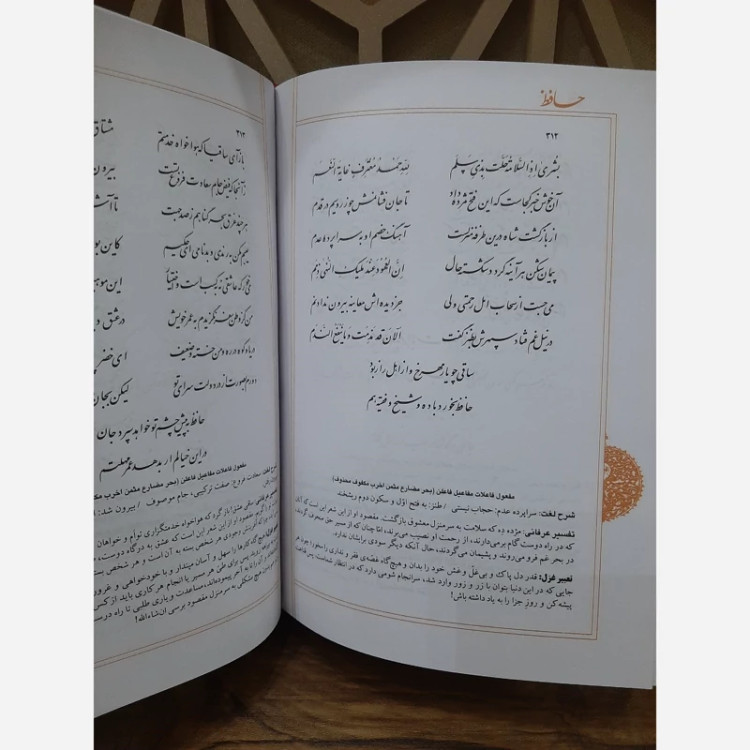 حافظ
۳۱۲
بشری اذ السّلامة حلّت بذی سلم لله حمد معترف غایة النّعم
آن خوش خبر کجاست که این فتح مژده داد تا جان فشانمش چو زر و سیم در قدم
از بازگشت شاه درین طرفه منزلست آهنگ خصم او به سراپردهٔ عدم
پیمان شکن هر آینه گردد شکسته حال انّ العهود عند ملیک النّهی ذمم
می‌جست از سحاب امل رحمتی ولی جز دیده‌اش معاینه بیرون نداد نم
در نیل غم فتاد سپهرش به طنز گفت الان قد ندمت و ما ینفع النّدم
ساقی چو یار مهرخ و از اهل راز بود
حافظ بخورد باده و شیخ و فقیه هم
مفعول فاعلات مفاعیل فاعلن (بحر مضارع مثمن اخرب مکفوف محذوف)
شرح لغت: سراپرده عدم: حجاب نیستی / طنز: به فتح اوّل و سکون دوم ریشخند
تفسیر عرفانی: مژده ده که سلامت به سرمنزل معشوق بازگشت. مقصود از این شعر این است آن
که در راه دوست گام برمی‌دارند، از رحمت او نصیب می‌برند، امّا چنان که از مسیر حق محرف گردند،
در بحر غم فرو می‌روند و پشیمان می‌گردند، حال آنکه دیگر سودی برایشان ندارد.
تعبیر غزل: قدر دل پاک و بی‌غلّ و غش خود را بدان و هیچ‌گاه غصّه‌ی فقر و نداری را مخور! چون هر
جایی که در این دنیا بتوان با زر و زور وارد شد، سرانجام شومی دارد که در انتظار شماست. پس قناعت
پیشه کن و روز جزا را به یاد داشته باش!
۳۱۳
بازآی ساقیا که هواخواه خدمتم مشتاق
زآنجا که فیض جام سعادت فروغ تست بیرون
هرچند غرق بحر گناهم ز صد جهت تا آش
عیبم مکن به رندی و بدنامی ای حکیم کاین بو
می خور که عاشقی نه به کسب است و اختیار این موهب
من کز وطن سفر نگزیدم به عمر خویش در عشق د
دریا و کوه در ره و من خسته و ضعیف ای خضر
دورم به صورت از در دولت سرای تو لیکن بجان
حافظ به پیش چشم تو خواهد سپرد جان
در این خیالم ار بدهد عمر مهلتم
مفعول فاعلات مفاعیل فاعلن (بحر مضارع مثمن اخرب مک